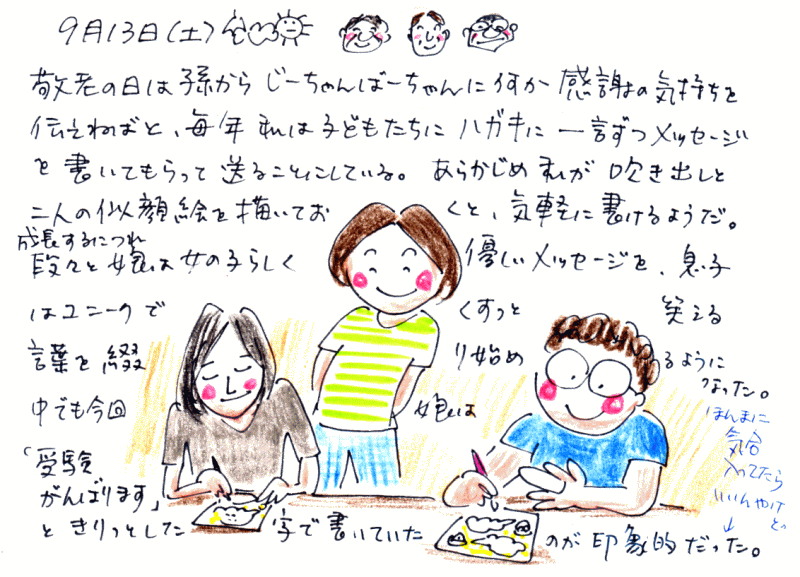 9月13日(土)
敬老の日は孫から じーちゃんばーちゃんに何か 感謝の気持ちを
伝えねばと、毎年 私は子どもたちに ハガキに 一言ずつ メッセージ
を 書いてもらって 送ることにしている。 あらかじめ 私が 吹き出しと
二人の似顔絵を描いてお くと、気軽に書けるようだ。
成長するにつれ
段々と 娘は女の子らしく 優しいメッセージを、息子
はユニークで くすっと 笑える
言葉を 綴 り始め るように
なった。
中でも今回 娘は
「受験
がんばります」
と きりっとした 字で書いていた のが 印象的だった。
ほんまに
気合
入ってたら
いいんやけ
ど
↓